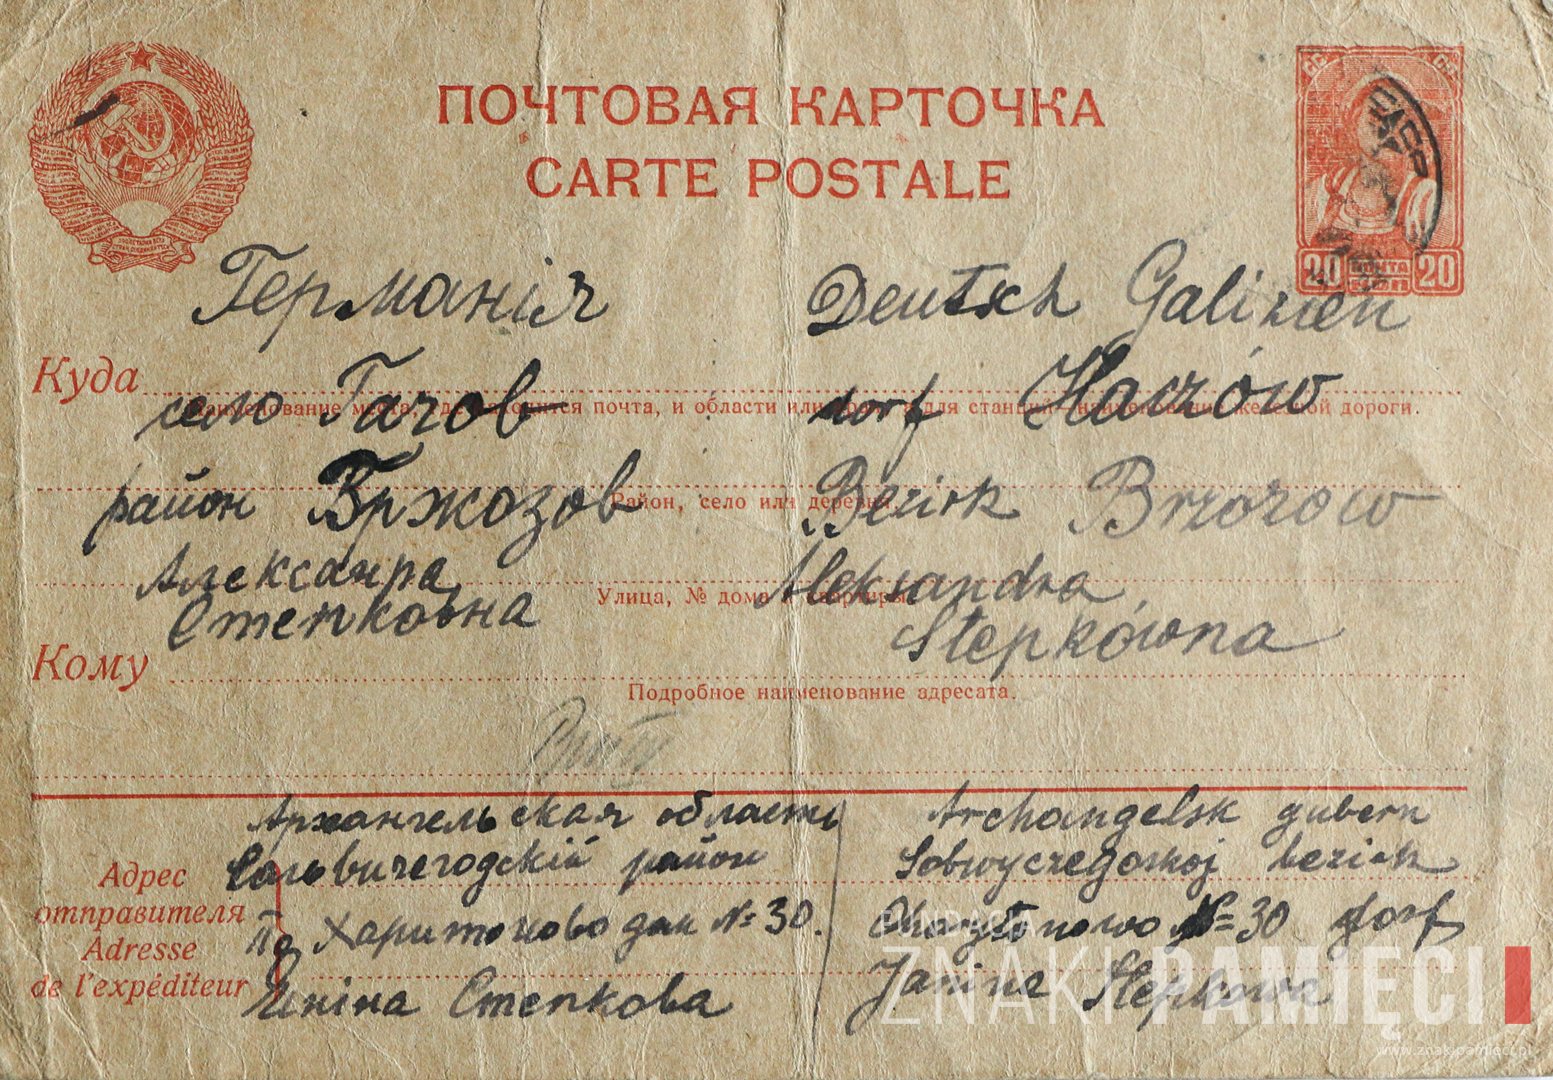 ПОЧТОВАЯ КАРТОЧКА
CARTE POSTALE
СС СР
20 ПОЧТА 20
Германія
Deutsch Galizien
Куда
село Гачов
dorf Haczów
Наименование места, где находится почта, и области или края, а для станций наименование железной дороги.
район Бржозов
Bezirk Brzozow
Район, село или деревня.
Алексанра
Aleksandra
Улица, № дома и квартиры
Степковна
Stepkówna
Кому
Подробное наименование адресата.
Архангельская область
Archangelsk gubern
Сольвичегодскій район
Solwyczegodskoj bezirk
Адрес
отправителя
Adresse
de l'expéditeur
Харитоново дом № 30.
№ 30 dorf
Яніна Степкова
Janina Stepkowa
FUNDACJA
ZNAKI PAMIĘCI
www.znakipamieci.pl